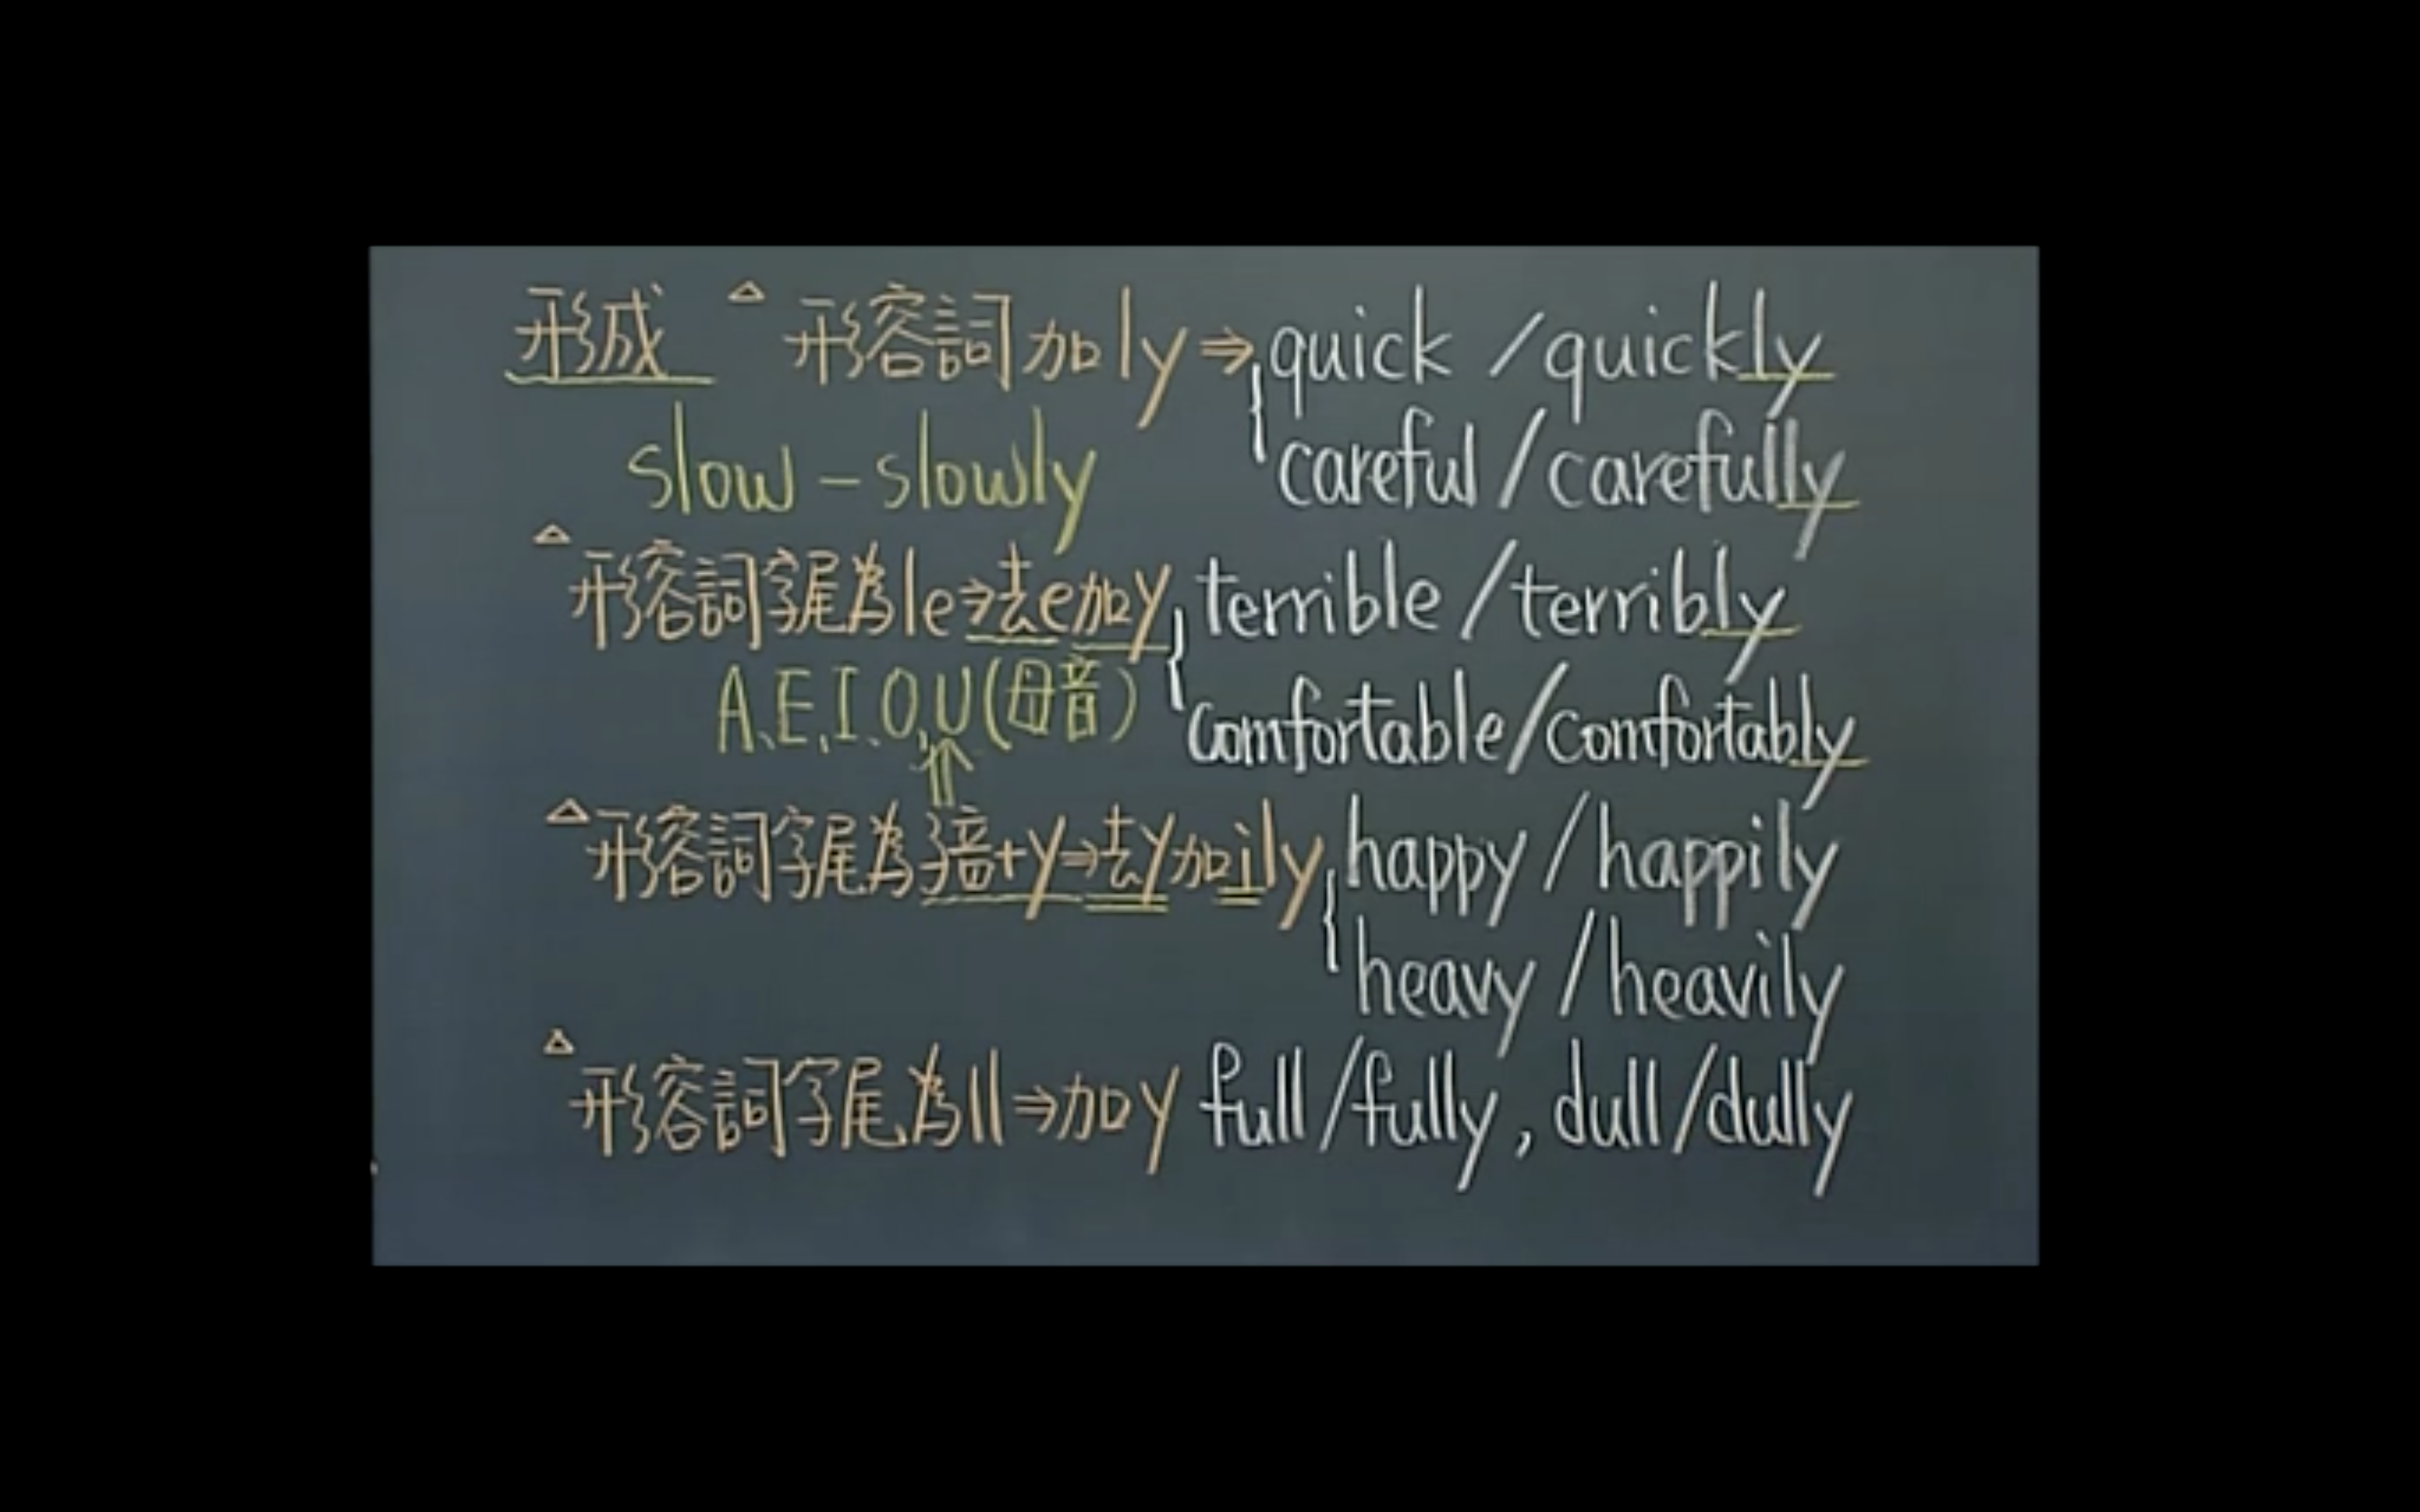 形成 △ 形容詞加ly ⇒ quick / quickly
slow - slowly careful / carefully
△ 形容詞字尾為le ⇒ 去e加y terrible / terribly
A、E、I、O、U (母音) comfortable / comfortably
△ 形容詞字尾為子音+y ⇒ 去y加ily happy / happily
heavy / heavily
△ 形容詞字尾為ll ⇒ 加y full / fully , dull / dully